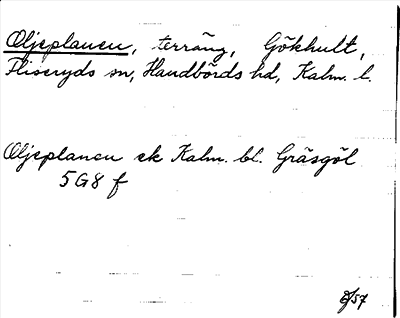 Oljeplanen, terräng, Gökhult,
Fliseryds sn, Handbörds hd, Kalm. l.
Oljeplanen ek Kalm. bl. Gräsgöl
5G8 f